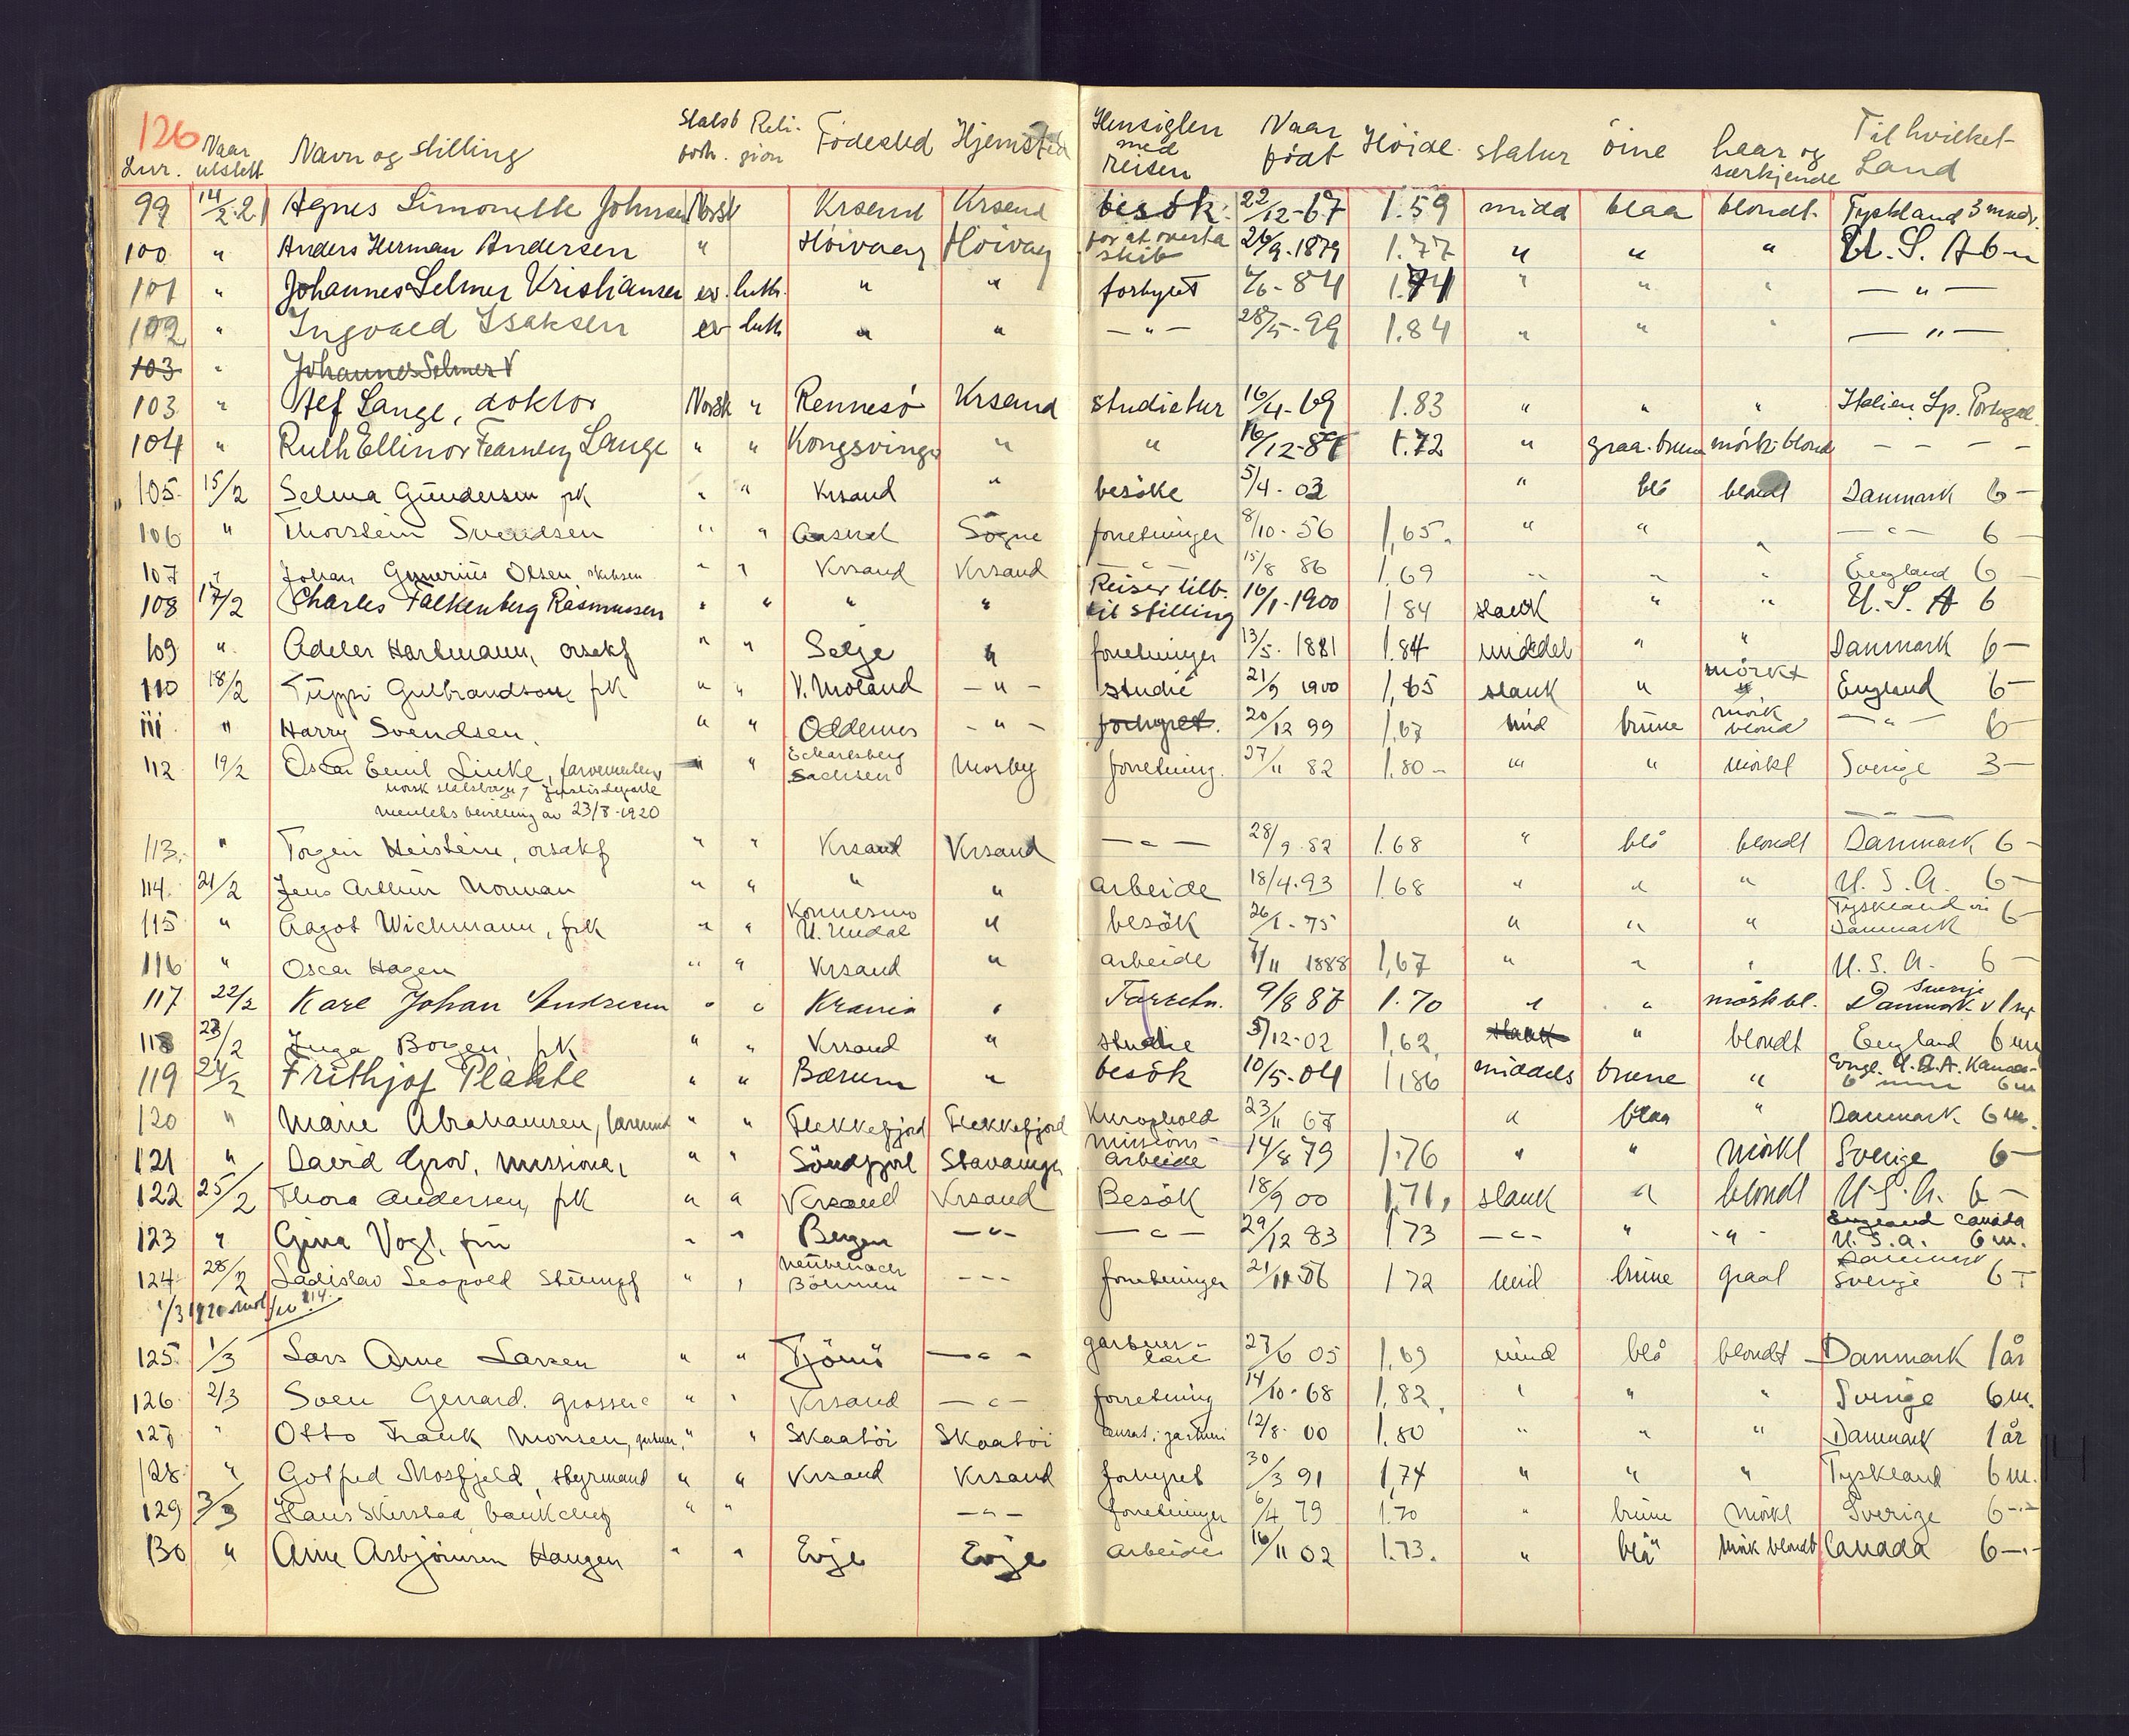 126
Lnr. Naar utstett Navn og stilling Statsb forh. Reli-gion Födested Hjemsted Hensigten med reisen Naar födt Höide. statur öine haar og særkjende Til hvilket Land
99 14/2.21 Agnes Simonette Johnsen Norsk Krsand Krsand besök. 22/12-67 1.59 midd blaa blondt. Tyskland 3 mndr.
100 " Anders Herman Andersen " Höivaag Höivag for at overta skib 26/9.1879 1.77 " " " U.S.A 6-"
101 " Johannes Selmer Kristiansen ev. luth. " " forhyret 84 1.74 " " " — " —
102 " Ingvald Isaksen ev luth " " — " — 28/5-99 1.84 " " " — " —
103 " Johannes Selmer K
103 " Alf Lange, doktor Norsk " Rennesö Krsand studietur 16/4-69 1.83 " " " Italien. Sp. Portugal
104 " Ruth Ellinor Fearnley Lange " " Kongsvinge " " 16/12-87 1.72 " graa-brun mörk-blond — — — —
105 15/2 Selma Gundersen frk " " Krsand " besöke 5/4-03 " blå blondt Danmark 6 —
106 " Thorstein Svendsen " " Sögne forretninger 8/10-56 1,65. " " — " — 6 —
107 " Johan Gunerius Olsen " " Krsand Krsand — " — 15/8 86 1,69 " " " England 6 —
108 17/2 Charles Falkenberg Rasmussen " " " " Reiser tilb. til stilling 16/1-1900 1 84 slank " " U.S.A 6
109 " Adeler Hartmann, orsakf " " Selje " forretninger 13/5. 1881 1.84 middel " " Danmark 6 —
110 18/2 Tuppi Gulbrandson frk " " V. Moland — " — studie 21/9 1900 1,65 slank " mörkt England 6 —
111 " Harry Svendsen. " " Oddernes — " — forhyret. 20/12 99 1,67 mid brune mörk blond — " — 6
112 19/2 Oscar Emil Linke, farvemester " " Eckartsberg Sachsen Mosby forretning. 27/11 82 1.80 — " " mörkt Sverige 3 —
norsk statsborger, Justisdeparte
mentets bevilling av 23/8-1920
113. " Torgen Heistein, orsakf " " Krsand Krsand — " — 28/9.82 1.68 " blå blondt Danmark 6 —
114. 21/2 Jens Arthur Norman " " " " arbeide 18/4.93 1.68 " " " U.S.A. 6 —
115 " Aagot Wichmann, frk " " Konnesmo U. Undal " besök 26/1-75 " " " Tyskland via Danmark 6 —
116 " Oscar Hagen " " Krsand " arbeide 7/11 1888 1,67 " " " U.S.A. 6 —
117 22/2 Karl Johan Andersen " " Krania " Forretn. 9/8 87 1.70 " " mörk bl. Sverige Danmark
118 23/2 Inga Borgen, frk " " Krsand " studie 5/12-02 1,62. slank " blondt England 6 m
119 24/2 Frithjof Plahte " " Bærum " besök 10/5-04 1,86 middels brune " Engl. U.S.A. Kanada 6 m
120 " Marie Abrahamsen, " " Flekkefjord Flekkefjord Kurophold 23/11 67 " blaa " Danmark 6 m.
121 " David Grov, missionær " " Söndfjord Stavanger missions-arbeide 14/8 79 1.76 " " mörkt Sverige 6 —
122 25/2 Thora Andersen, frk " " Krsand Krsand Besök 18/9 00 1,71, slank " blondt U.S.A. 6 —
123 " Gina Vogt, fru " " Bergen — " — — " — 29/12 83 1 73 — " — " — " — England Canada U.S.A. 6 m.
124 28/2 Ladislav Leopold Stumpf " " Böhmen — " — forretninger 21/11 56 1 72 mid brune graat Danmark Sverige 6 —
125. 1/3 Lars Arne Larsen " " Tjömö — " — gartner-lære 27/6 05 1,69 mid blå blondt Danmark 1 år
126 2/3 Sven Gerrard. grosser " " Krsand — " — forretning 14/10-68 1,82. " " " Sverige 6 m.
127 " Otto Frank Monsen, gartner, " " Skaatöi Skaatöi 12/8. 00 1.80 " " " Danmark 1 år
128 " Gotfred Mosfjeld, styrmand " " Krsand Krsand forhyret 30/3 91 1,74 " " " Tyskland 6 m.
129 3/3 Hans Skirstad bankchef " " — " — forretninger 6/4 79 1.70 " brune mörkt Sverige 6 —
130 " Arne Asbjörnsen Haugen " " Evje Evje arbeide 16/11 02 1.73. " blå mörk blondt Canada 6 —